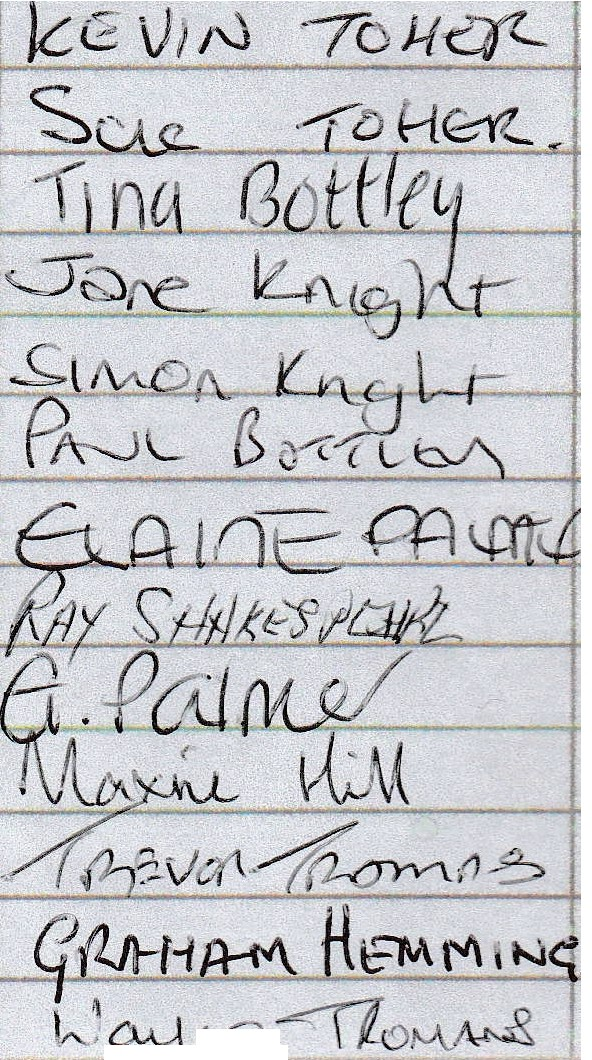 KEVIN TOHER
Sue TOHER.
Tina Bottley
Jane Knight
SIMON Knight
PAUL BOTTLEY
ELAINE
RAY SHAKESPEARE
G. Palmer
Maxine Hill
TREVOR TROMANS
GRAHAM HEMMING
TROMANS